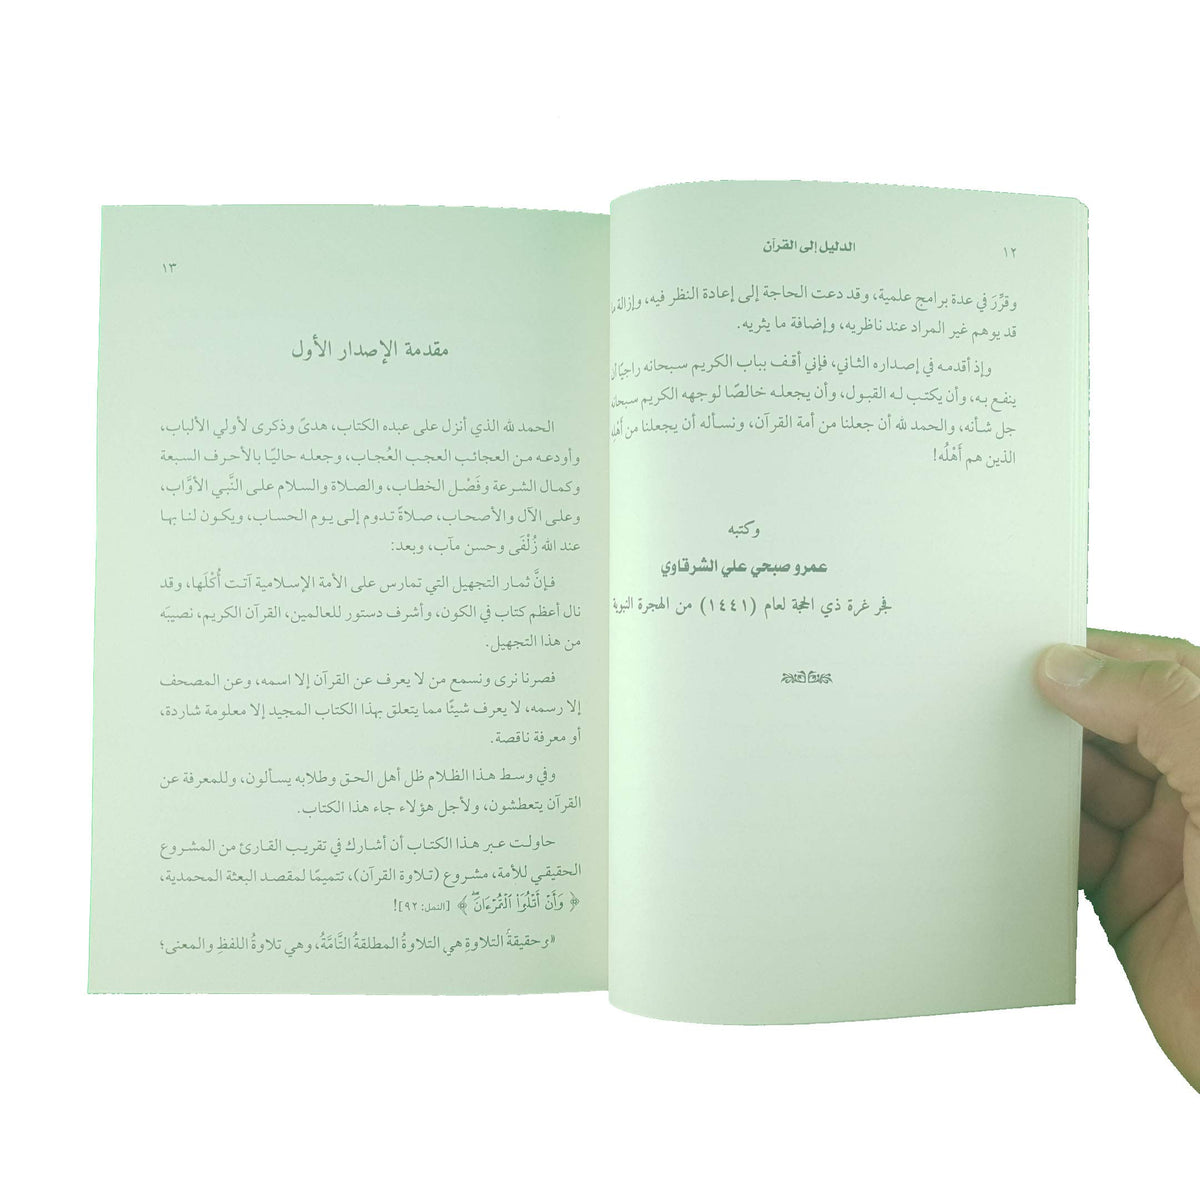 ١٢
الدليل إلى القرآن
وقرِّرَ في عدة برامج علمية، وقد دعت الحاجة إلى إعادة النظر فيه، وإزالة
قد يوهم غير المراد عند ناظريه، وإضافة ما يثريه.
وإذ أقدمه في إصداره الثاني، فإني أقف بباب الكريم سبحانه راجيًا
ينفع به، وأن يكتب له القبول، وأن يجعله خالصًا لوجهه الكريم
جل شأنه، والحمد لله أن جعلنا من أمة القرآن، ونسأله أن يجعلنا من
الذين هم أَهْلُه!
وكتبه
عمرو صبحي علي الشرقاوي
فجر غرة ذي الحجة لعام (١٤٤١) من الهجرة
١٣
مقدمة الإصدار الأول
الحمد لله الذي أنزل على عبده الكتاب، هدىً وذكرى لأولي الألباب،
وأودعه من العجائب العجب العُجاب، وجعله حاليًا بالأحرف السبعة
وكمال الشرعة وفَصْل الخطاب، والصلاة والسلام على النَّبي الأوَّاب،
وعلى الآل والأصحاب، صلاةً تدوم إلى يوم الحساب، ويكون لنا بها
عند الله زُلْفَى وحسن مآب، وبعد:
فإنَّ ثمار التجهيل التي تمارس على الأمة الإسلامية آتت أُكْلَها، وقد
نال أعظم كتاب في الكون، وأشرف دستور للعالمين، القرآن الكريم، نصيبَه
من هذا التجهيل.
فصرنا نرى ونسمع من لا يعرف عن القرآن إلا اسمه، وعن المصحف
إلا رسمه، لا يعرف شيئًا مما يتعلق بهذا الكتاب المجيد إلا معلومة شاردة،
أو معرفة ناقصة.
وفي وسط هذا الظلام ظل أهل الحق وطلابه يسألون، وللمعرفة عن
القرآن يتعطشون، ولأجل هؤلاء جاء هذا الكتاب.
حاولت عبر هذا الكتاب أن أشارك في تقريب القارئ من المشروع
الحقيقي للأمة، مشروع (تلاوة القرآن)، تتميمًا لمقصد البعثة المحمدية،
﴿ وَأَنْ أَتْلُوَا۟ ٱلْقُرْءَانَ ۖ ﴾ [النمل: ٩٢]!
«وحقيقةُ التلاوةِ هي التلاوةُ المطلقةُ التَّامَّةُ، وهي تلاوةُ اللفظِ والمعنى؛